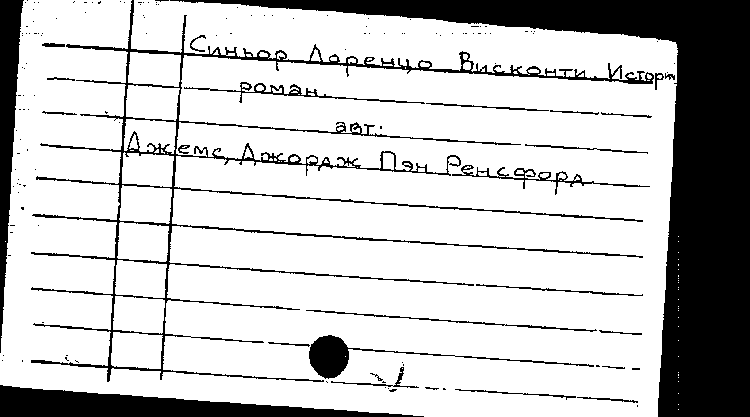 Синьор Лоренцо Висконти. Истор
роман.
авт:
Джемс, Джордж Пэн Ренсфорд